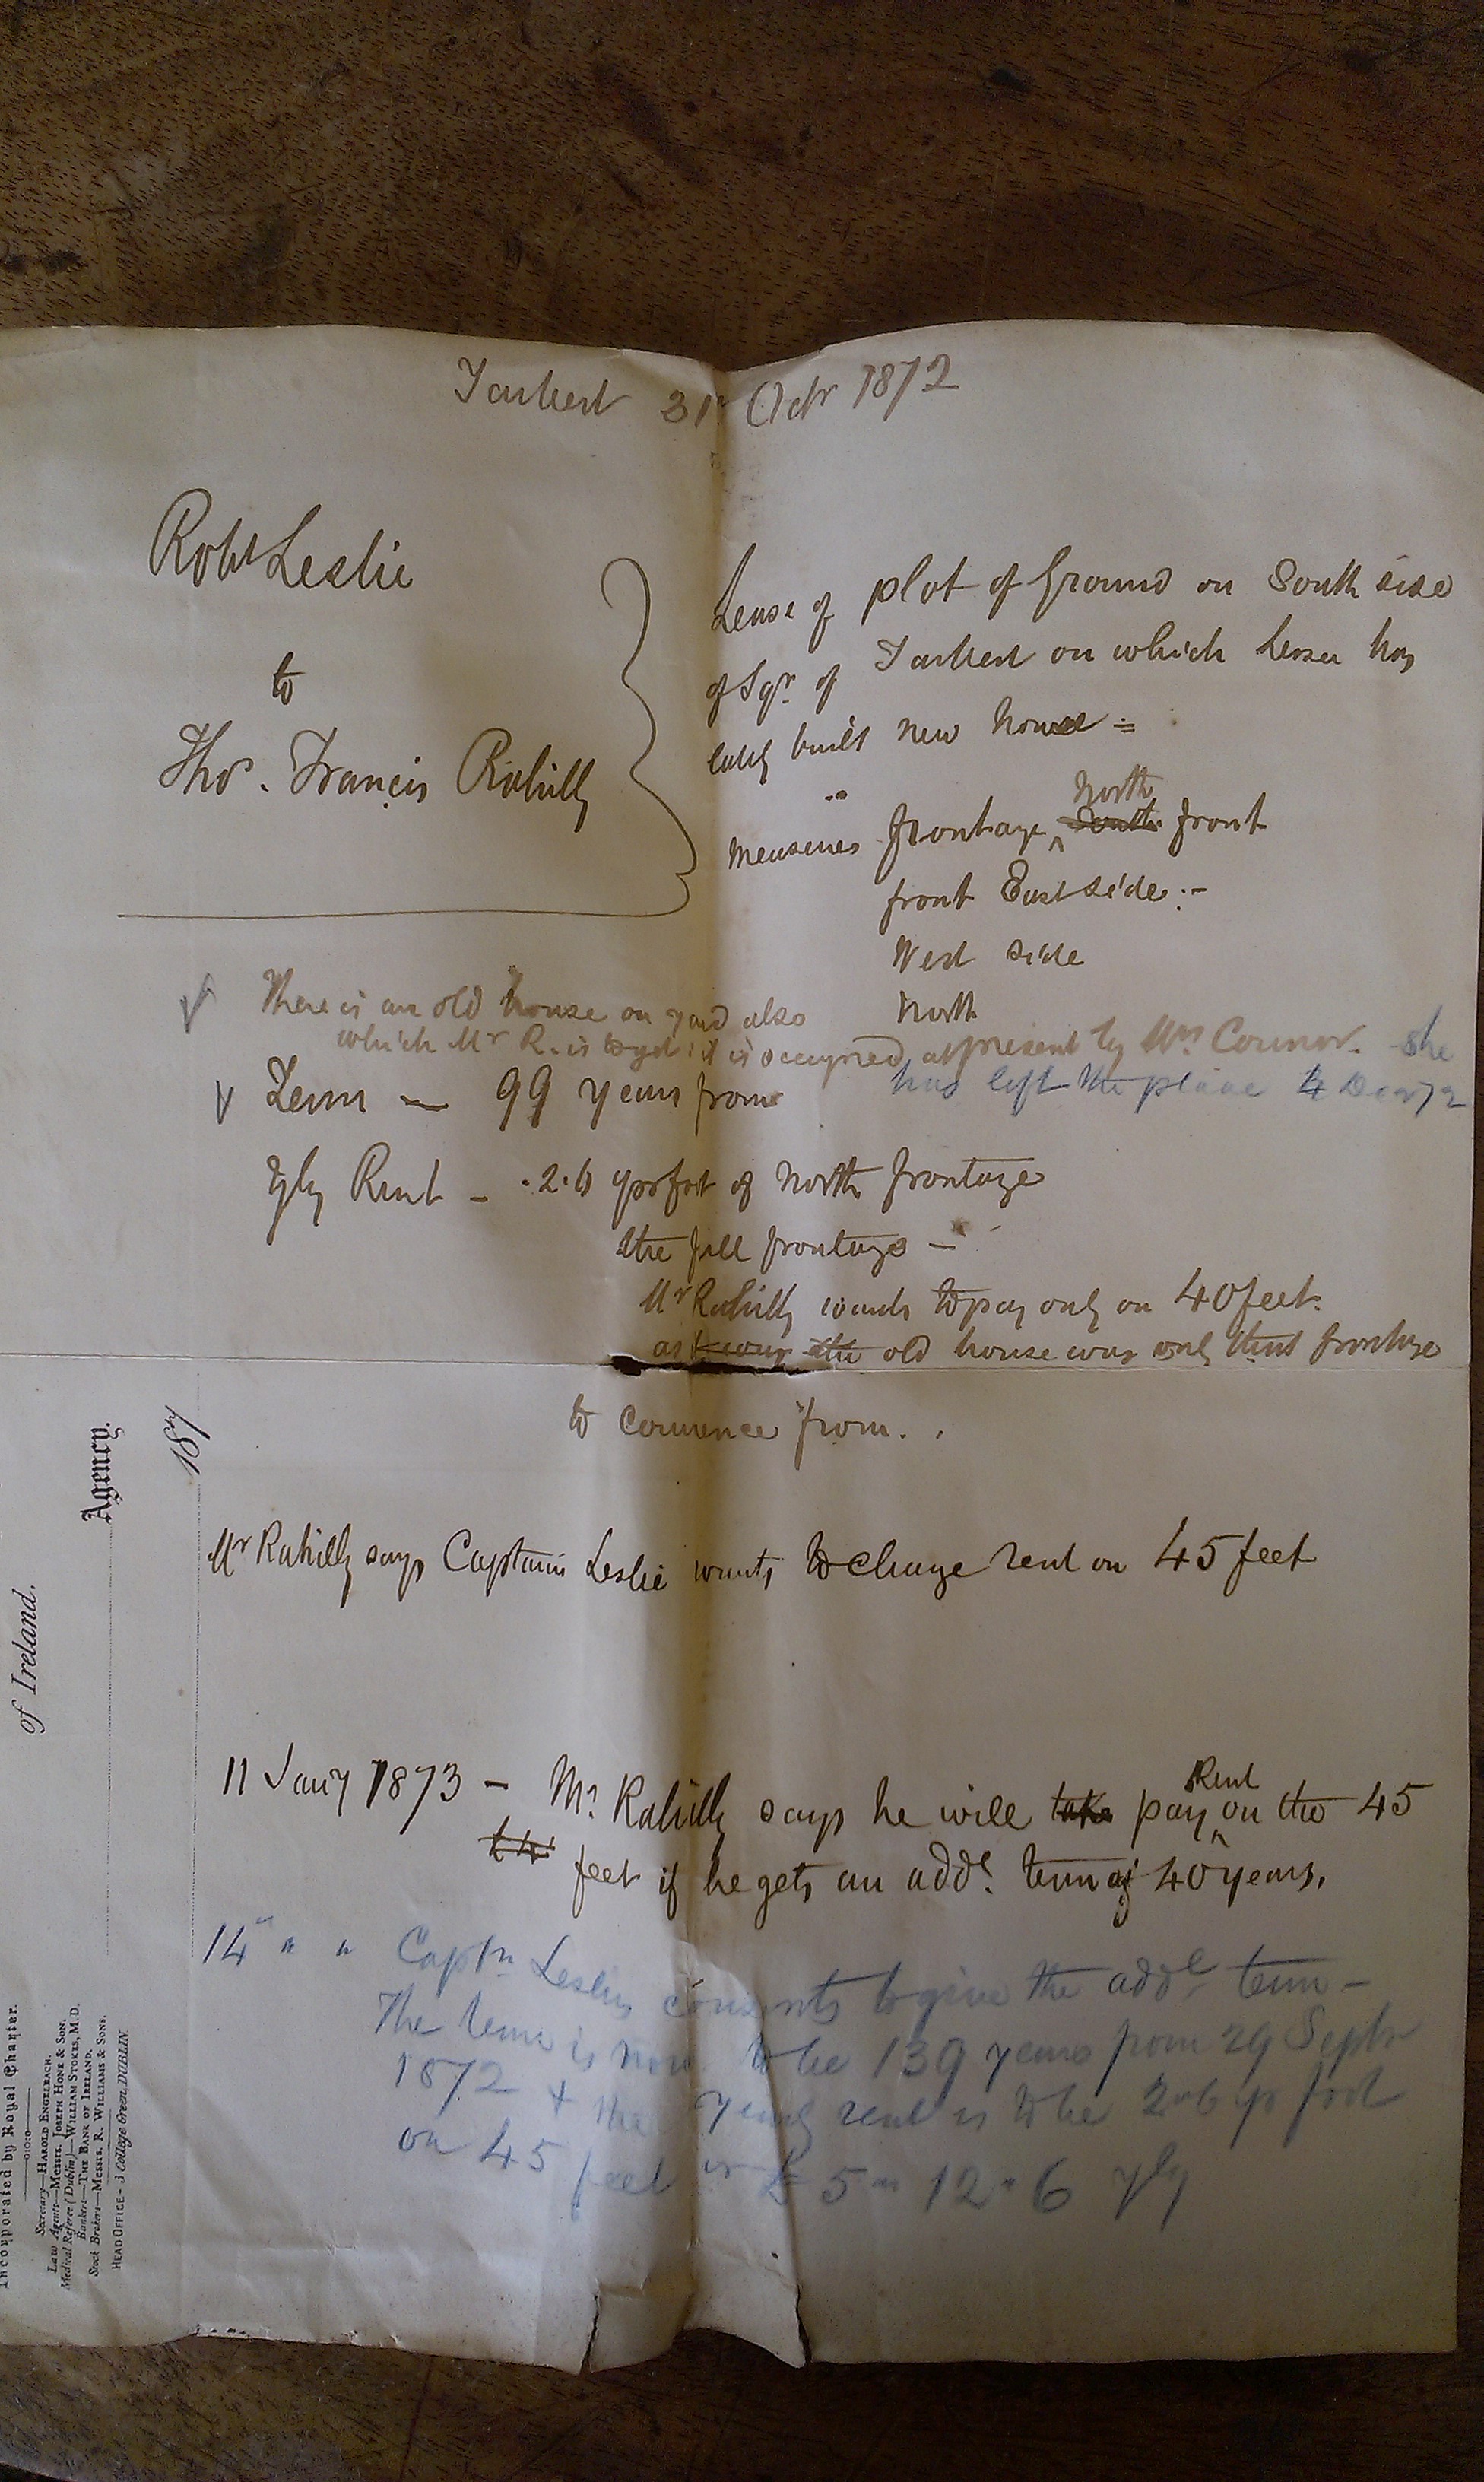 Tarbert 31st Octr 1872
Robt Leslie
to
Thos. Francis Rahilly
Lease of plot of Ground on South side
of Sqr. of Tarbert on which lessee has
lately built new house =
measures frontage North South front
front East side :-
West side
North
There is an old house on yard also
which Mr R. is to get: it is occupied at present by Mrs Connor. She
has left the place 4 Decr 72
Term — 99 years from
Yly Rent - .2.6 per foot of North frontage
the full frontage —
Mr Rahilly wants to pay only on 40 feet.
as the old house was only that frontage
to commence from.
Mr Rahilly says Captain Leslie wants to charge rent on 45 feet
11 Jany 1873 - Mr. Rahilly says he will take pay Rent on the 45
feet if he gets an addl. term of 40 years.
14 " " Captn. Leslie consents to give the addl term -
The term is now to be 139 years from 29 Septr
1872 & the yearly rent is to be 2"6 p foot
on 45 feet or £5"12"6 yly
of Ireland.
Agency.
187
Incorporated by Royal Charter.
Secretary—HAROLD ENGELBACH.
Law Agents—MESSRS. JOSEPH HONE & SON.
Medical Referee (Dublin)—WILLIAM STOKES, M.D.
Bankers—THE BANK OF IRELAND.
Stock Brokers—MESSRS. R. WILLIAMS & SONS.
HEAD OFFICE - 3 College Green, DUBLIN.